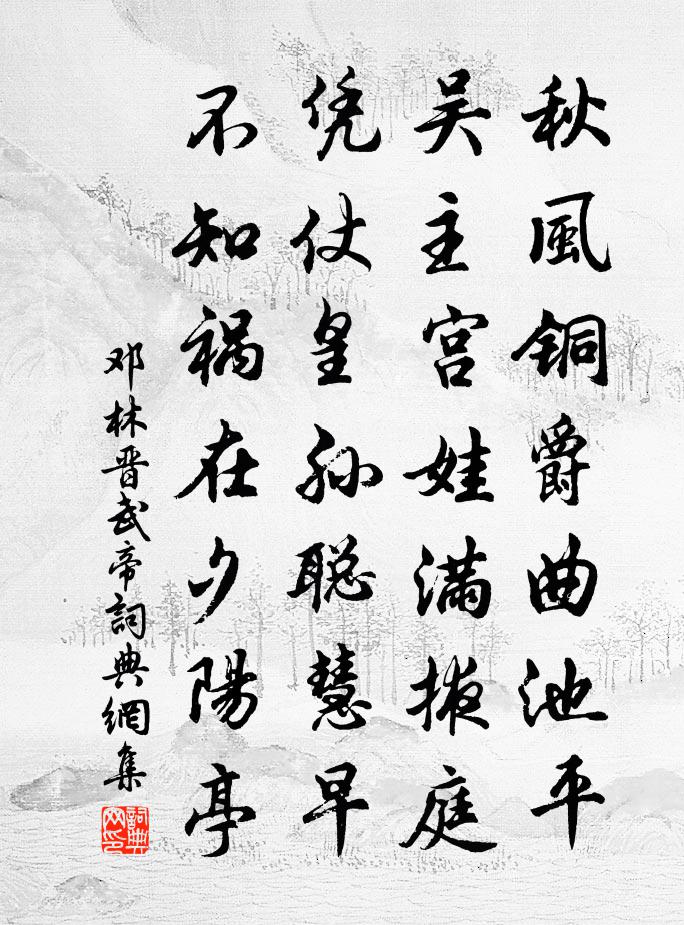 秋風铜爵曲池平
吴主宫娃满掖庭
凭仗皇孙聪慧早
不知祸在夕陽亭
邓林晋武帝詞典網集
詞典网印